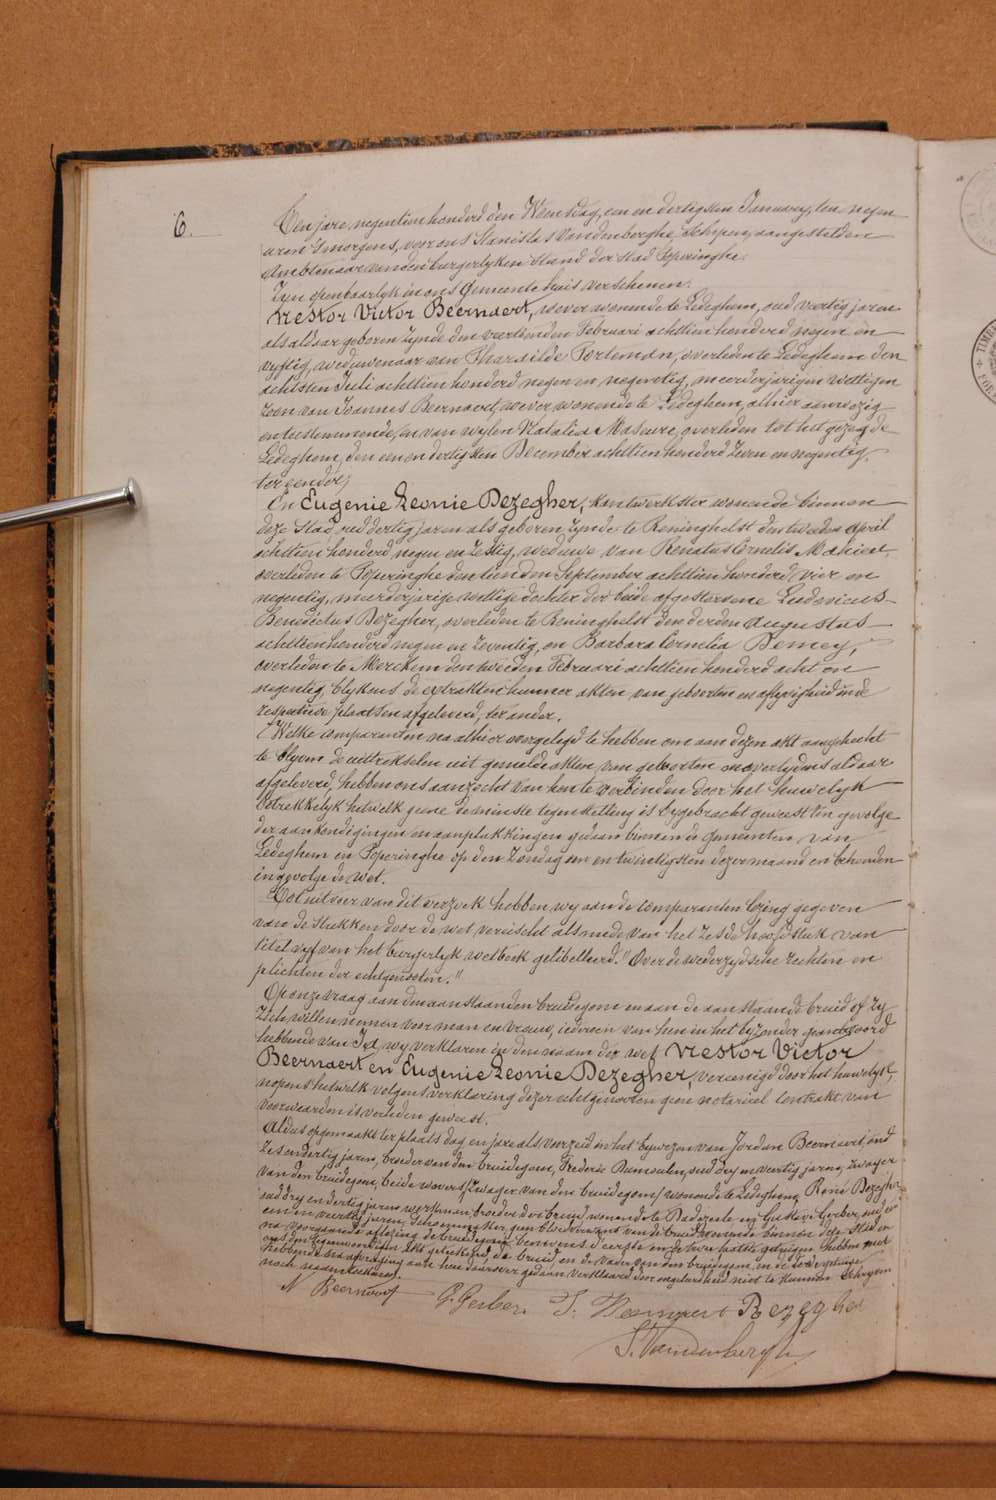 6.
Ten jare negentien honderd den Weensdag, een en dertigsten January, ten negen
uren 's morgens, voor ons Stanislas Vandenberghe Schepen, aangestelden
Ambtenaar van den burgerlyken Stand der stad Poperinghe.
Zyn openbaarlyk in ons Gemeente huis verschenen:
Nestor Victor Beernaert, wever wonende te Ledeghem, oud veertig jaren
als aldaar geboren zynde den veertienden Februari achttien honderd negen en
vyftig, weduwenaar van Pharaïlde Torteman, overleden te Ledeghem den
achtsten Juli achttien honderd negen en negentig, meerderjarigen wettigen
zoon van Joannes Beernaert, wever wonende te Ledeghem, alhier aanwezig
en toestemmende, en van wylen Natalia Masure, overleden tot het gezegde
Ledeghem, den een en dertigsten December achttien honderd zeven en negentig,
ter eender;
En Eugenie Leonie Dezegher, kantwerkster wonende binnen
deze Stad, oud dertig jaren als geboren zynde te Reninghelst den tweeden april
achttien honderd negen en zestig, weduwe van Renatus Cornelis Mahieu,
overleden te Poperinghe den tienden September achttien honderd vier en
negentig, meerderjarige wettige dochter der beide afgestorvene Ludovicus
Benedictus Dezegher, overleden te Reninghelst den derden Augustus
achttien honderd negen en zeventig, en Barbara Cornelia Demey,
overleden te Merckem den tweeden Februari achttien honderd acht en
negentig, blykens de extrakten hunner akten van geboorten en aflyvigheid in de
respectieve plaatsen afgeleverd, ter ander.
Welke comparanten na alhier voorgelegd te hebben om aan dezen akt aangehecht
te blyven de uittrekselen uit gemelde akten van geboorten en overlydens aldaar
afgeleverd, hebben ons aanzocht van hen te verbinden door het huwelyk
betrekkelyk hetwelk geene de minste tegenstelling is bygebracht geweest ten gevolge
der aankondigingen en aanplakkingen gedaan binnen de gemeenten van
Ledeghem en Poperinghe op den Zondag een en twintigsten dezer maand en behouden
ingevolge de wet.
Tot uitvoer van dit verzoek hebben wy aan de comparanten lezing gegeven
van de stukken door de wet vereischt alsmede van het zesde hoofdstuk van
titel vyf van het burgerlyk wetboek gelibelleerd: "Over de wederzydsche rechten en
plichten der echtgenooten."
Op onze vraag aan den aanstaanden bruidegom en aan de aanstaande bruid of zy
zich willen nemen voor man en vrouw, iedereen van hen in het byzonder geantwoord
hebbende van Ja, wy verklaren in den naam der wet Nestor Victor
Beernaert en Eugenie Leonie Dezegher, vereenigd door het huwelyk,
nopens hetwelk volgens verklaring dezer echtgenooten geene notariëel contrakt van
voorwaarden is verleden geweest.
Aldus opgemaakt ter plaats dag en jare als voorzeid in het bywezen van Jordan Beernaert, oud
zes en dertig jaren, broeder van den bruidegom, Frederic oud dry en veertig jaren, zwager
van den bruidegom, beide wevers (zwager van den bruidegom) wonende te Ledeghem, René Dezegher,
oud dry en dertig jaren, werkman, broeder der bruid, wonende te Dadizeele en Gustave Gerber, oud
een en veertig jaren, schoenmaker, geen bloedverwant van de bruid wonende binnen deze Stad en
na voorgaande aflezing de bruidegom benevens d'eerste en de twee laatste getuigen hebben met
ons den tegenwoordigen akt geteekend, de bruid en de vader van den bruidegom en de 2de getuige
hebbende na afvraging aan hen daarover gedaan verklaard door ongeleerdheid niet te kunnen schryven
noch naamteekenen.
N Beernaert G. Gerber. J. Beernaert Dezegher
S. Vandenberghe